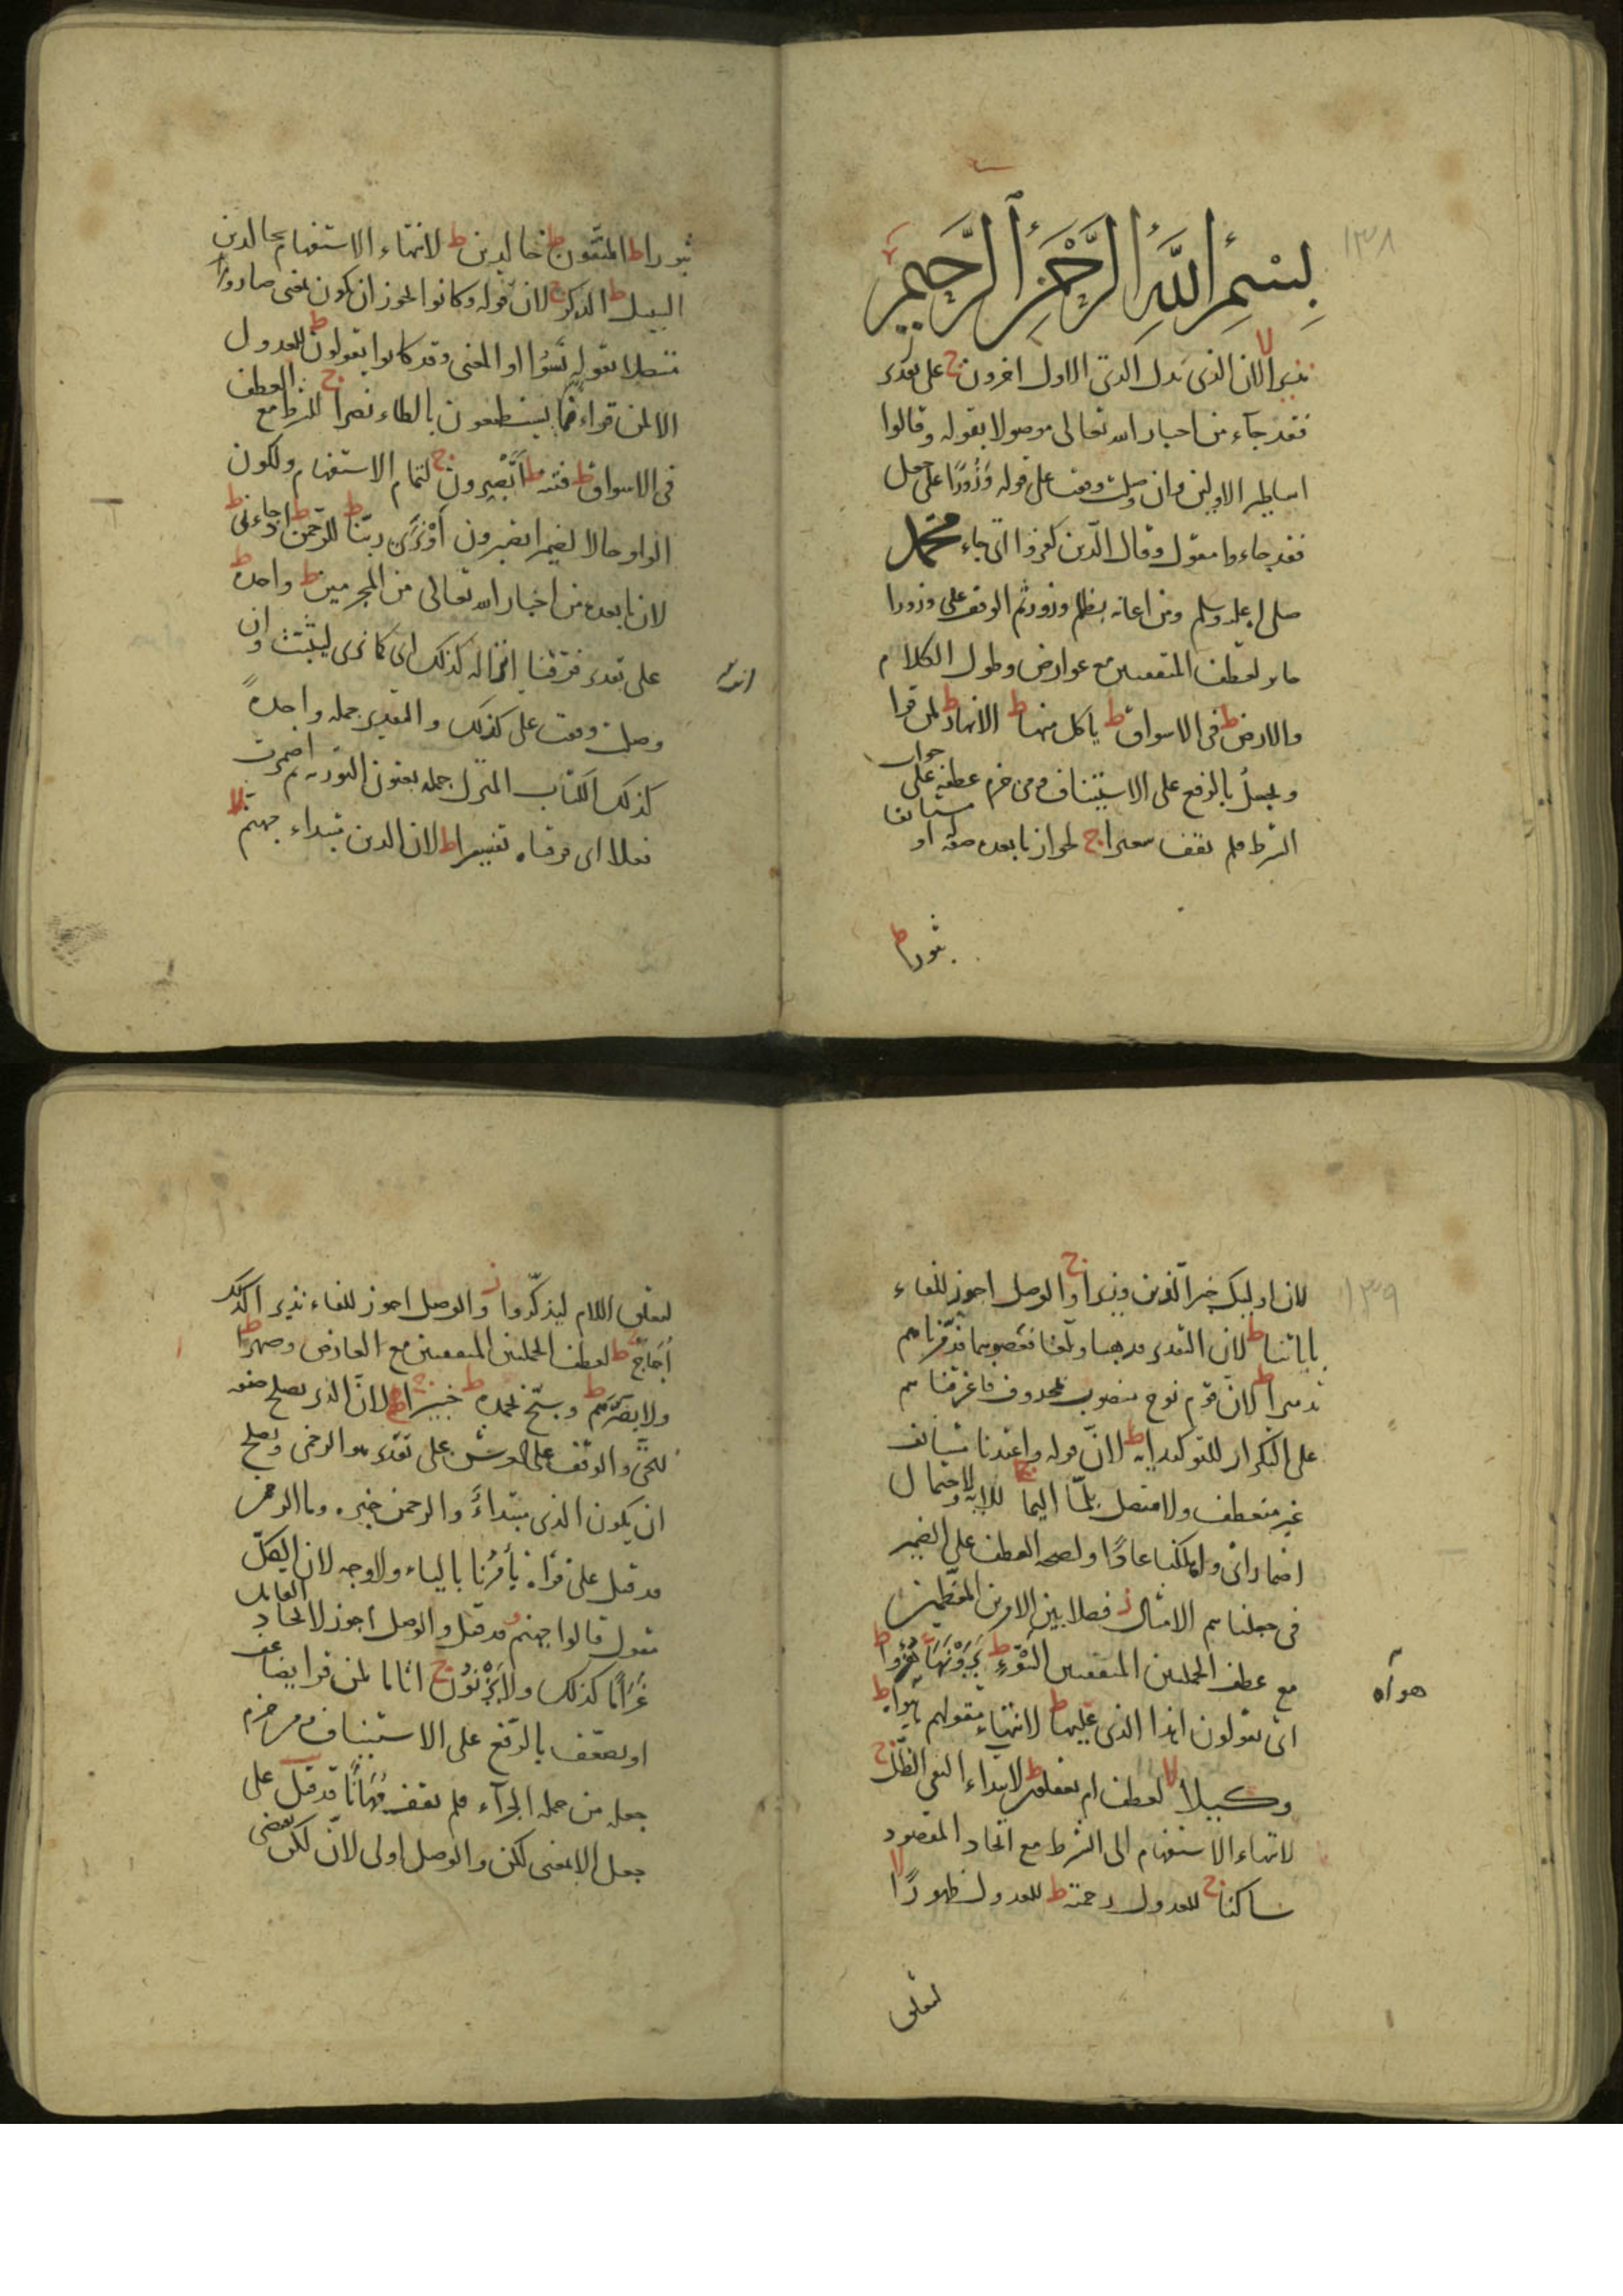 ١٣٨
بِسْمِ اللَّهِ الرَّحْمَنِ الرَّحِيمِ
نذيرا لا لان الذى بدل الذى الاول اخرون ج على تقدير
فقد جاء من اخبار الله تعالى موصولا بقوله وقالوا
اساطير الاولين وان وصلت وقفت على قوله وَزُورًا على جعل
فقد جاءوا مقول وقال الذين كفروا اى جاء محمد
صلى الله عليه وسلم ومن اعانه بظلم وزور ثم الوقف على وزورا
جايز لعطف المتفقتين مع عوارض وطول الكلام
والارض ط فى الاسواق ط ياكل منها ط الانهار ط لمن قرا
ويجعلُ بالرفع على الاستيناف ومن جزم عطفه على جواب
الشرط فلم يقف سعيرا ج لجواز ما بعده صفة او مستانفا
ثبورا ط
ثبورا ط المتقون ط خالدين ط لانتهاء الاستفهام بخالدين
السبيل ط الذكر ج لان قوله وكانوا يجوز ان يكون بمعنى صاروا
متصلا بقوله نَسُوا او المعنى وقد كانوا بقولون ط للعدول
الا لمن قراء فما يستطيعون بالطاء نصرا ج للشرط مع العطف
فى الاسواق ط فتنة ط أَتَصْبِرون ج لتمام الاستفهام ولكون
الواو حالا لضمير اتصبرون أَوْ نَرَى ربنا ط للرحمن ط اذ جاءنى ط
لان ما بعده من اخبار الله تعالى من المجرمين ط واحدة ط
على تقدير فرقنا انزاله كذلك اى كما نرى لنثبت وان
وصلت وقفت على كذلك والتقدير جملة واحدةً
كذلك الكتاب المنزل جملة يعنون التورية ثم اضمرت
فعلا اى فرقناه تفسيرا ط لان الذين مبتداء جهنم لا
١٣٩
لان اوليك خبر الذين وزيرا ج والوصل اجوز للفاء
باياتنا ط لان التقدير فذهبا وبلغا فعصوهما فدمرناهم
تدميرا ط لان قوم نوح منصوب بمحذوف فاغرقناهم
على التكرار للتوكيد اية ط لان قوله واعتدنا مستانف
غير منعطف ولا متصل بلمّا اليما ج للاية ولاحتمال
اضمار اى واهلكنا عادًا ولصحة العطف على الضمير
فى جعلناهم الامثال ز فصلا بين الامرين المعظمين
مع عطف الجملتين المتفقتين السَّوْءِ ط يَرَوْنَهَا ج هُزُوا ط
اى يقولون اهذا الذى عليها ط لانتهاء مقولهم هواه ط
هواه
وكيلا لا لعطف ام يعقلون ط لابتداء النفى الظل ج
لانتهاء الاستفهام الى الشرط مع اتحاد المقصود
ساكنا ج للعدول رحمته ط للعدول طهورًا لا
لتعلق
لتعلق اللام ليذكّروا ز والوصل اجوز للفاء نذيرا كذلك
أُجاجٌ ج لعطف الجملتين المتفقتين مع العارض وصهرا ط
ولا يضرّهم ط وسبّح بحمده ط خبيرا ج لان الذى يصلح صفة
للحىّ والوقف على العرش على تقدير هو الرحمن ويصلح
ان يكون الذى مبتداءً والرحمن خبره وما الرحمن
قد قيل على قراة يأمرنا بالياء ولا وجه لان الكلّ
مقول قالوا جهنم قد قيل والوصل اجوز لاتحاد القايل
غَرَامًا كذلك ولا يَزْنُونَ ج اثاما لمن قرا يضاعف
او يضعف بالرفع على الاستيناف ومن جزم
جعله من جملة الجزآء فلم يقف مُهَانًا قد قيل على
جعل الا بمعنى لكن والوصل اولى لان لكن يقتضى